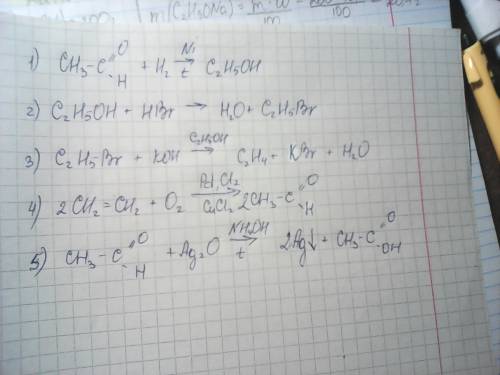 m(C₂H₅ONa) = m·ω
100
1) CH₃-C=O H + H₂ Ni→t C₂H₅OH
2) C₂H₅OH + HBr → H₂O + C₂H₅Br
3) C₂H₅Br + KOH C₂H₅OH→ C₂H₄ + KBr + H₂O
4) 2CH₂=CH₂ + O₂ Pd,Cl₂→CuCl₂ 2CH₃-C=O H
5) CH₃-C=O H + Ag₂O NH₄OH→t 2Ag↓ + CH₃-C=O OH